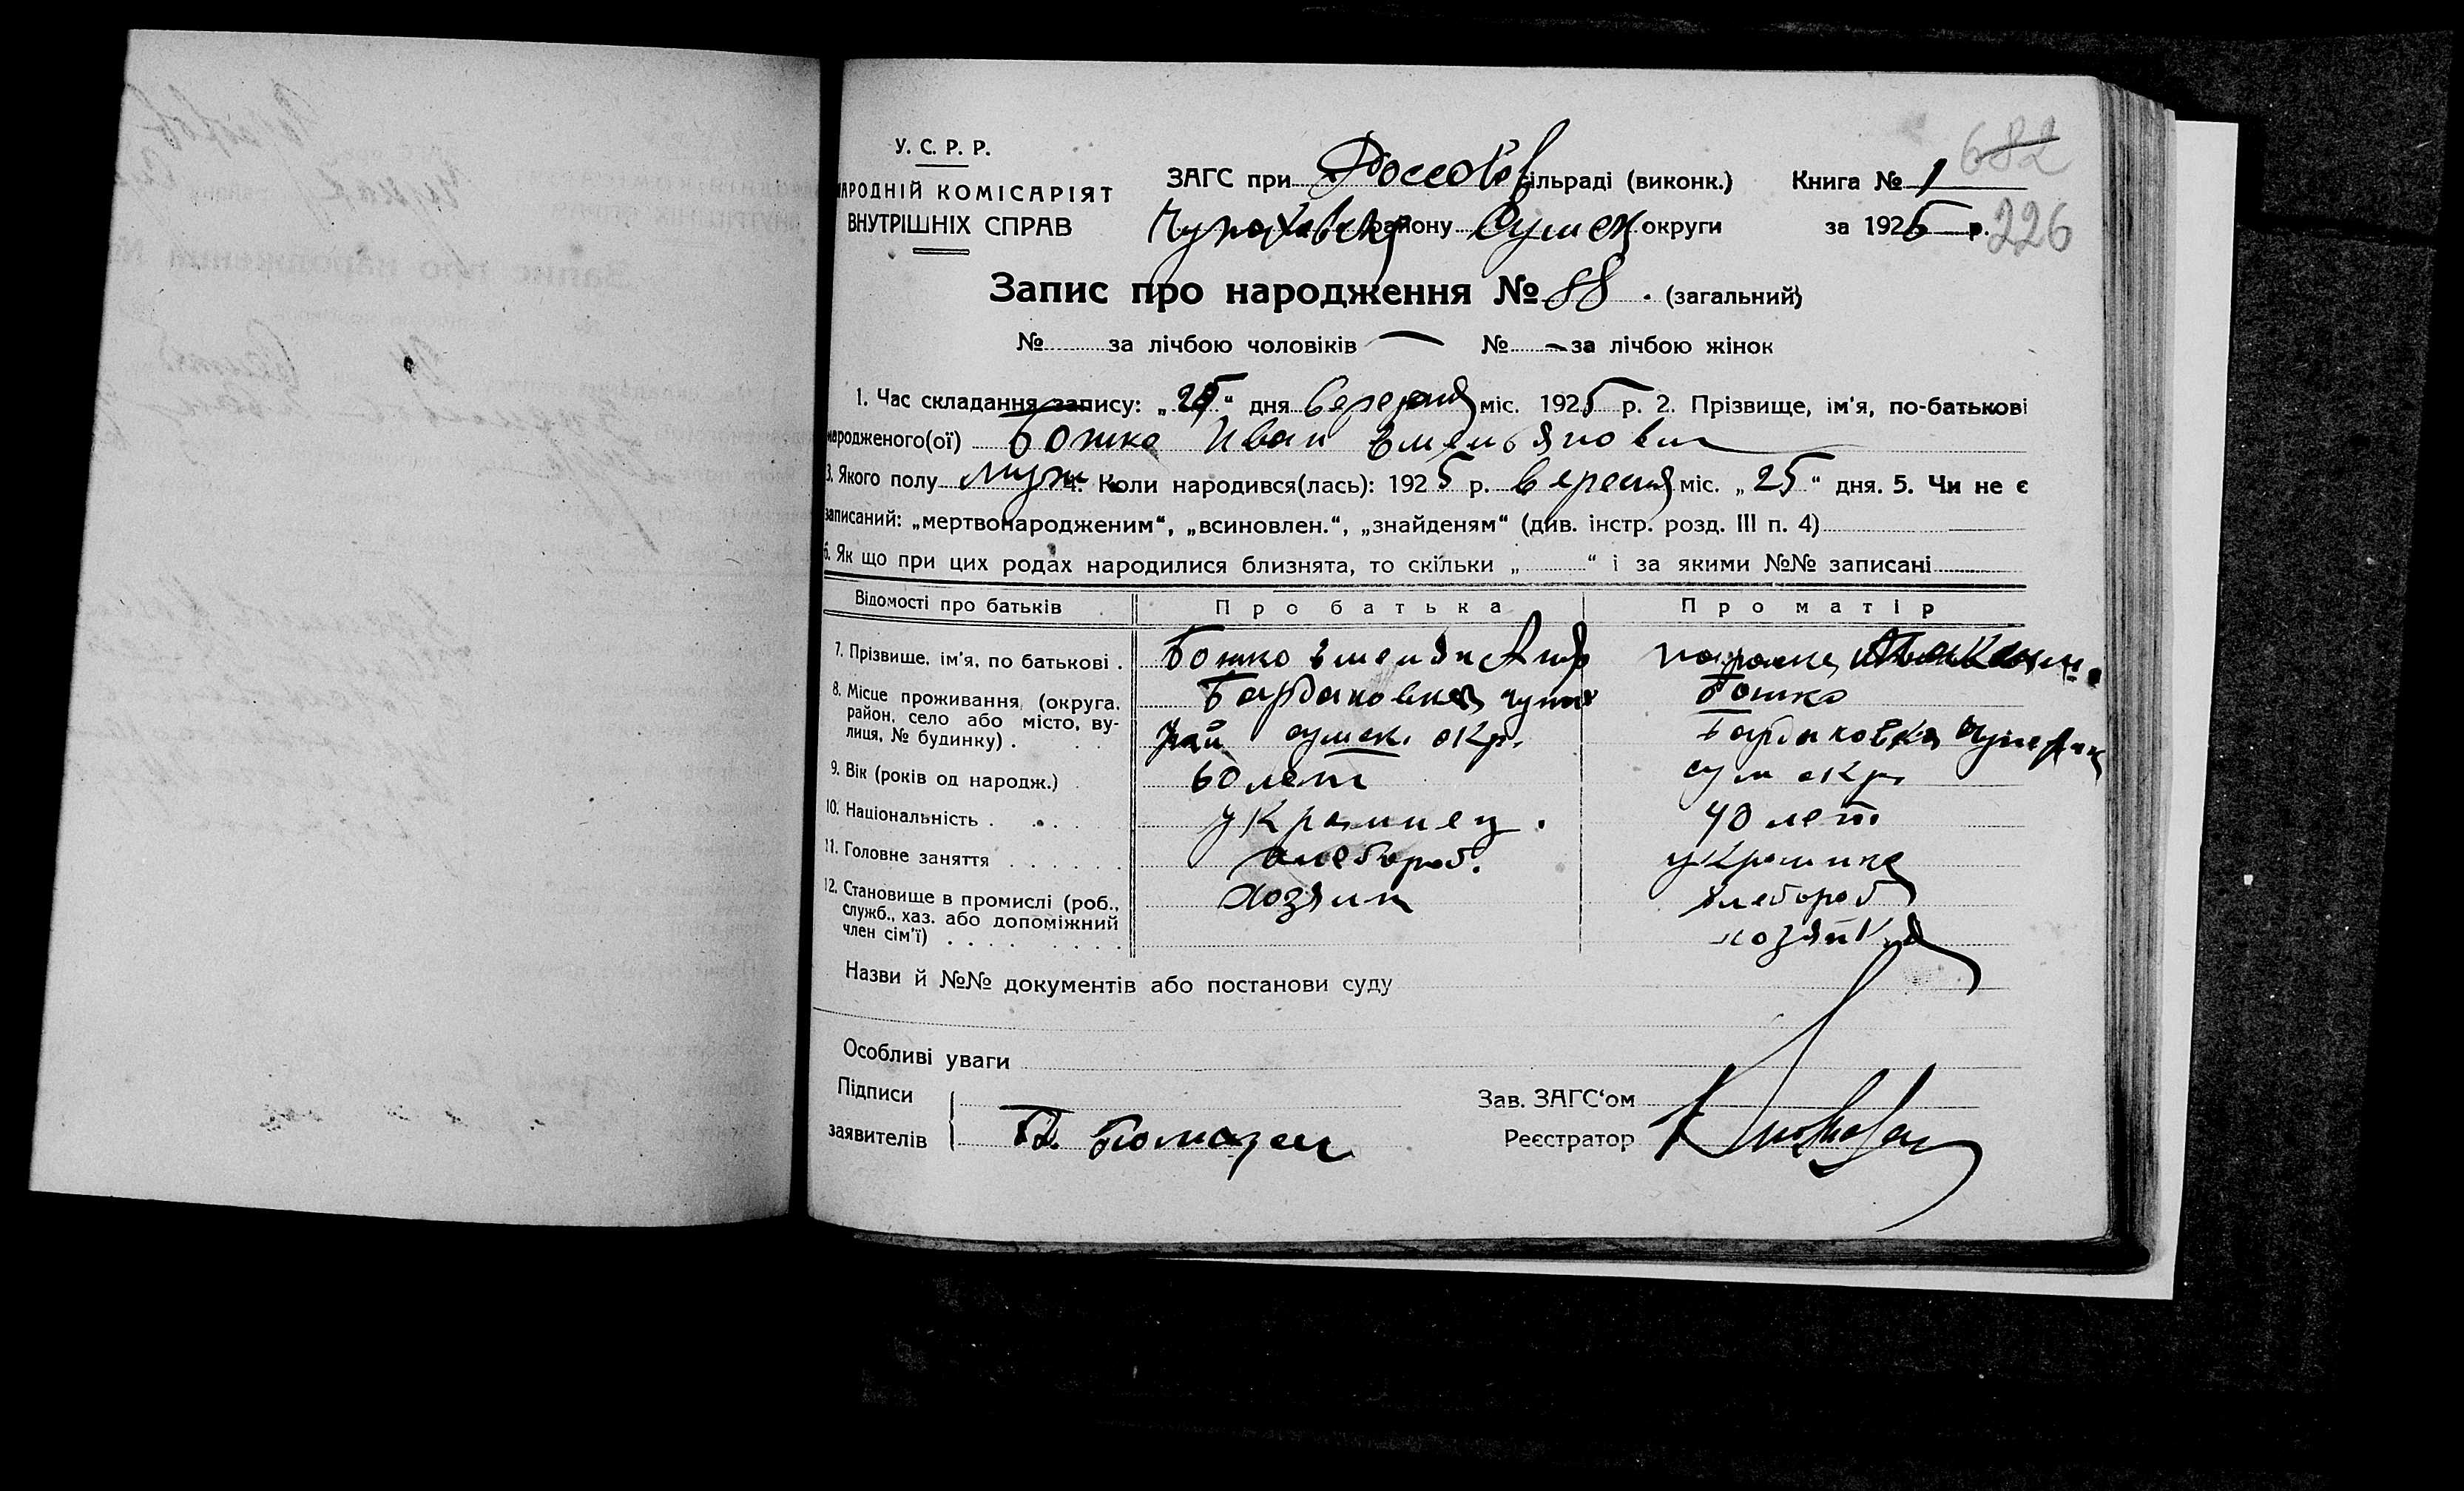 682
У. С. Р. Р.
НАРОДНІЙ КОМІСАРІЯТ
ВНУТРІШНІХ СПРАВ
ЗАГС при сільраді (виконк.) Книга № 1
району Сумск округи за 1925 р. 226
Запис про народження № 88 (загальний)
№ за лічбою чоловіків № за лічбою жінок
1. Час складання запису: „25“ дня вересня міс. 1925 р. 2. Прізвище, ім'я, по-батькові
народженого(ої) Божко Иван Эмельянович
3. Якого полу муж 4. Коли народився(лась): 1925 р. вересня міс. „25“ дня. 5. Чи не є
записаний: „мертвонародженим“, „всиновлен.“, „знайденям“ (див. інстр. розд. III п. 4)
6. Як що при цих родах народилися близнята, то скільки „ “ і за якими №№ записані
Відомості про батьків Про батька Про матір
7. Прізвище, ім'я, по батькові . Божко Эмельян
8. Місце проживання, (округа, район, село або місто, вулиця, № будинку) . Бардаковка чупах Божко
рай сумск. окр. Бардаковка
9. Вік (років од народж.) 60 лет сум окр
10. Національність . . . украинец. 40 лет
11. Головне заняття . . . . . . хлебороб. украинка
12. Становище в промислі (роб., служб., хаз. або допоміжний член сім'ї) . . . . . . . . хозяин хлебороб
хозяйка
Назви й №№ документів або постанови суду
Особливі уваги
Підписи
заявителів
Зав. ЗАГС'ом
Реєстратор